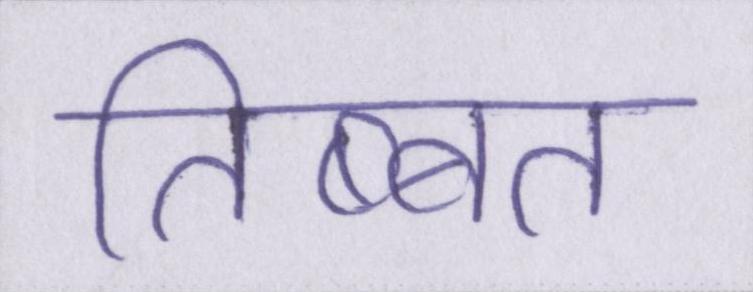 तिब्बत